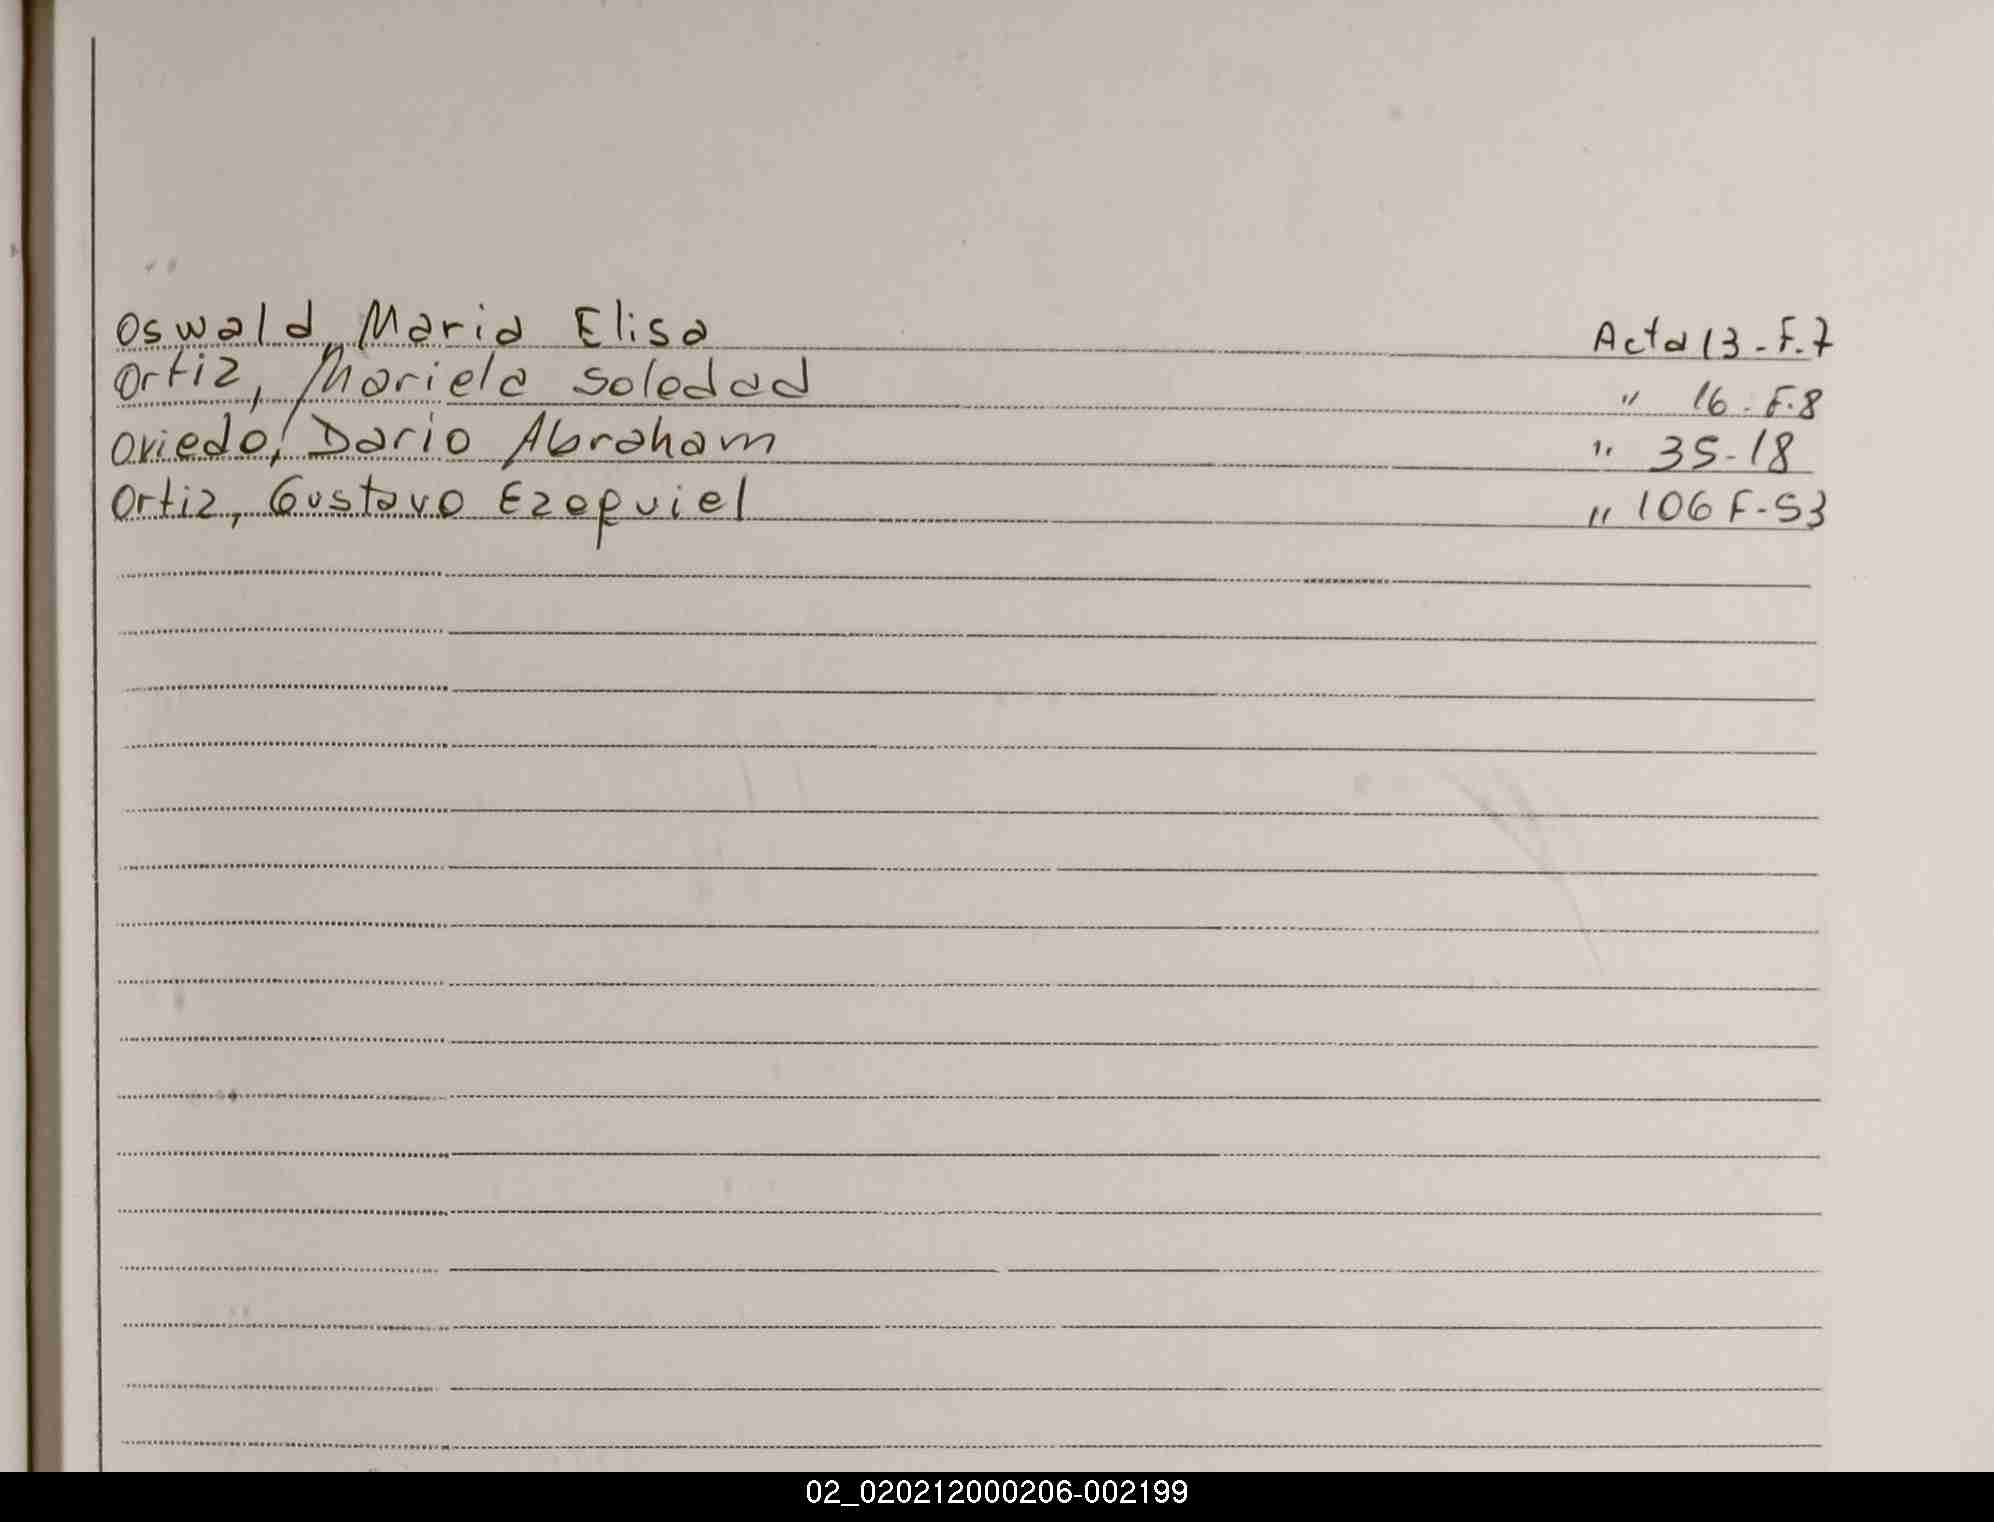 Oswald, Maria Elisa Acta 13-F.7
Ortiz, Mariela Soledad " 16-F.8
Oviedo, Dario Abraham " 35-18
Ortiz, Gustavo Ezequiel " 106 F-53
02_020212000206-002199